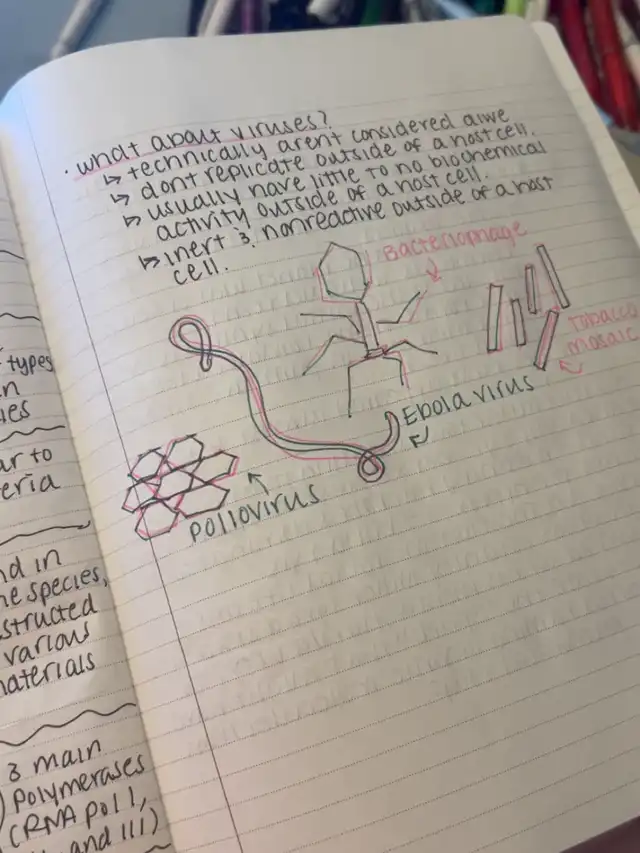 · what about viruses?
↳ technically arent considered alive
↳ dont replicate outside of a host cell.
↳ usually have little to no biochemical
activity outside of a host cell.
↳ inert & nonreactive outside of a host
cell.
Bacteriophage
tobacco
mosaic
Ebola virus
pollovirus
types
in
ies
ar to
eria
nd in
ne species,
structed
various
materials
3 main
polymerases
(RNA pol I,
and III)